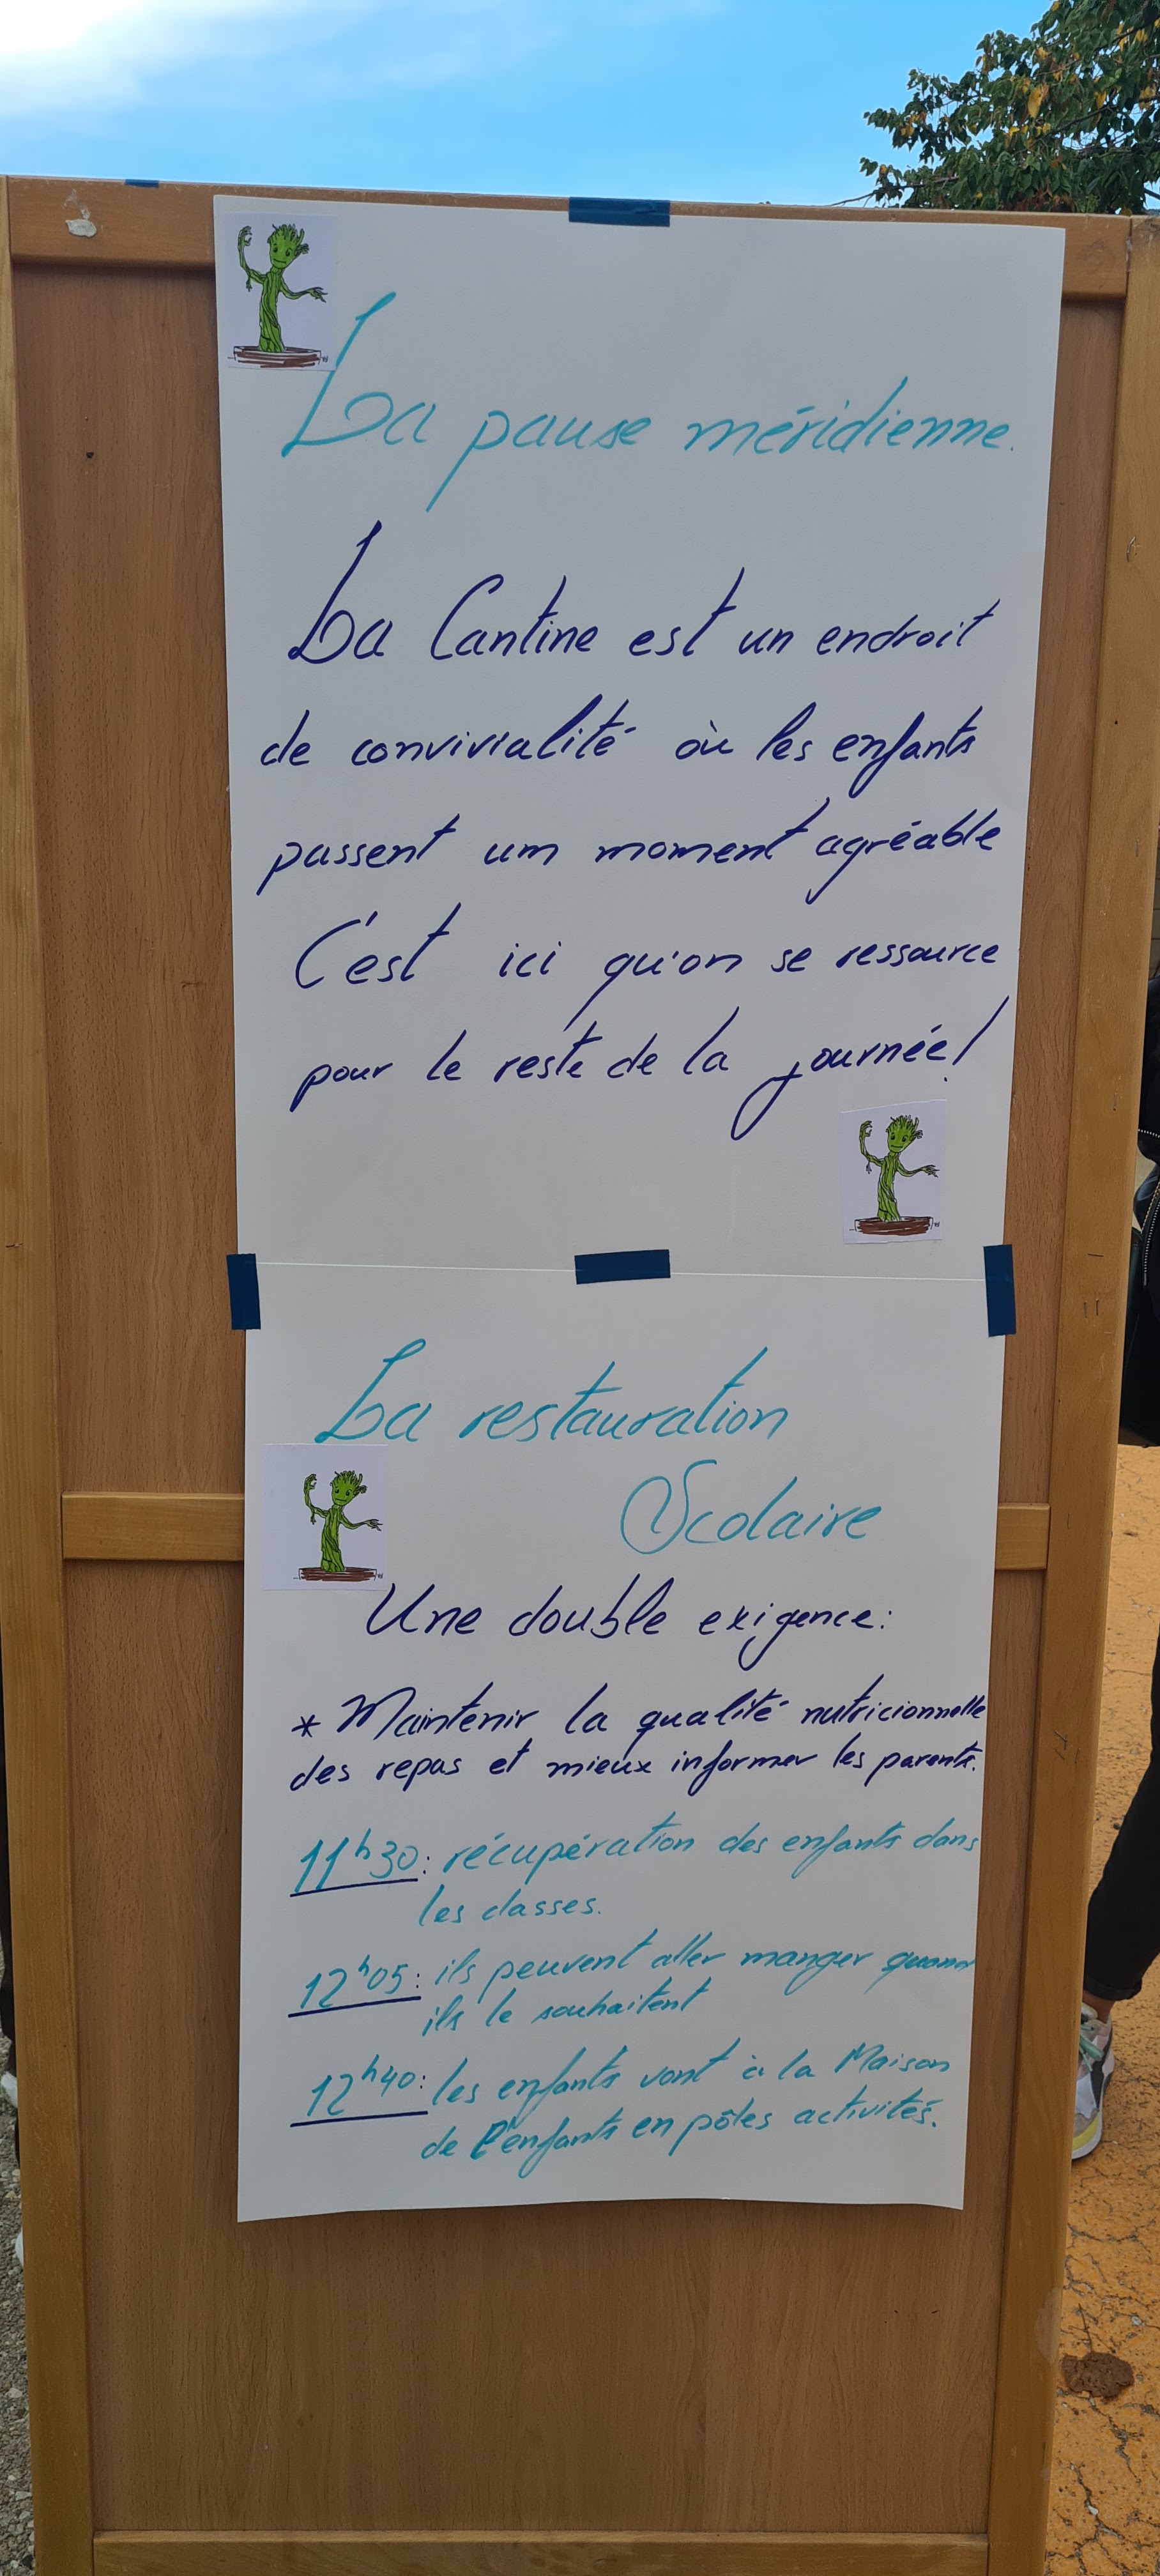 La pause méridienne.
La Cantine est un endroit
de convivialité où les enfants
passent um moment agréable
C'est ici qu'on se ressource
pour le reste de la journée!
La restauration
Scolaire
Une double exigence:
* Maintenir la qualité nutricionnelle
des repas et mieux informer les parents.
11h30: récupération des enfants dans
les classes.
12h05: ils peuvent aller manger quand
ils le souhaitent
12h40: les enfants vont à la Maison
de l'enfants en pôles activités.